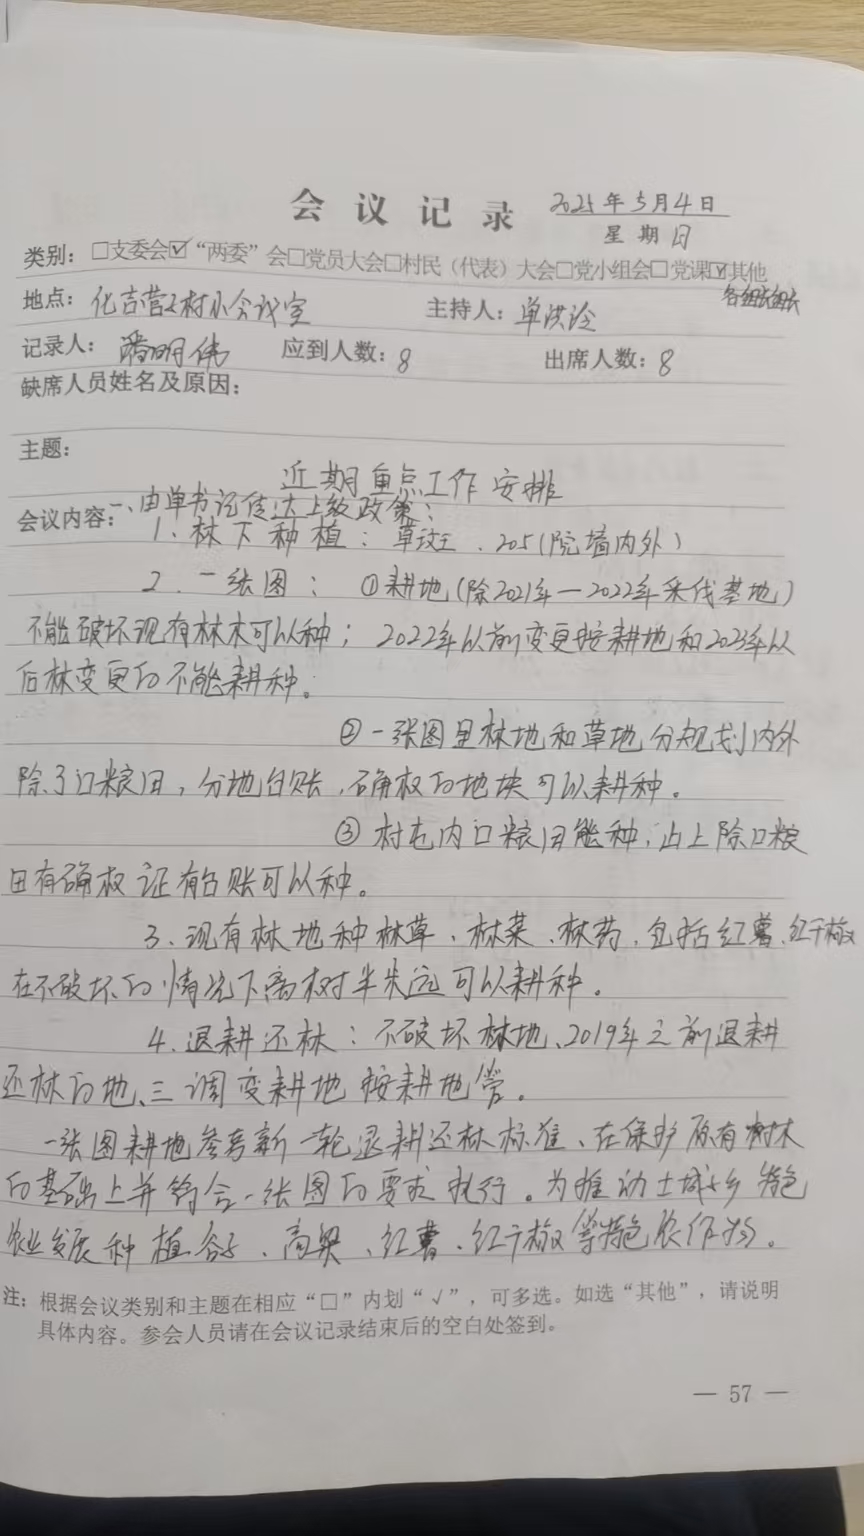 会议记录 2025年5月4日
星期日
类别：□支委会☑“两委”会□党员大会□村民（代表）大会□党小组会□党课☑其他
各组组长
地点：化吉营子村小会议室 主持人：单洪玲
记录人：潘明伟 应到人数：8 出席人数：8
缺席人员姓名及原因：
主题：
近期重点工作安排
会议内容：一、由单书记传达上级政策：
1、林下种植：草 、205（院墙内外）
2、一张图：①耕地（除2021年—2022年采伐基地）
不能破坏现有林木可以种；2022年以前变更按耕地和2023年以
后林变更的不能耕种。
②一张图里林地和草地分规划内外
除了口粮田，分地台账，确权的地块可以耕种。
③村屯内口粮田能种，山上除口粮
田有确权证有台账可以种。
3、现有林地种林草、林菜、林药，包括红薯、红干椒
在不破坏的情况下离树半米远可以耕种。
4、退耕还林：不破坏林地、2019年之前退耕
还林的地、三调变耕地按耕地管。
一张图耕地参考新一轮退耕还林标准、在保护原有树木
的基础上并符合一张图的要求执行。为推动土城子乡特色
农业发展种植谷子、高粱、红薯、红干椒等特色农作物。
注：根据会议类别和主题在相应“□”内划“√”，可多选。如选“其他”，请说明
具体内容。参会人员请在会议记录结束后的空白处签到。
— 57 —